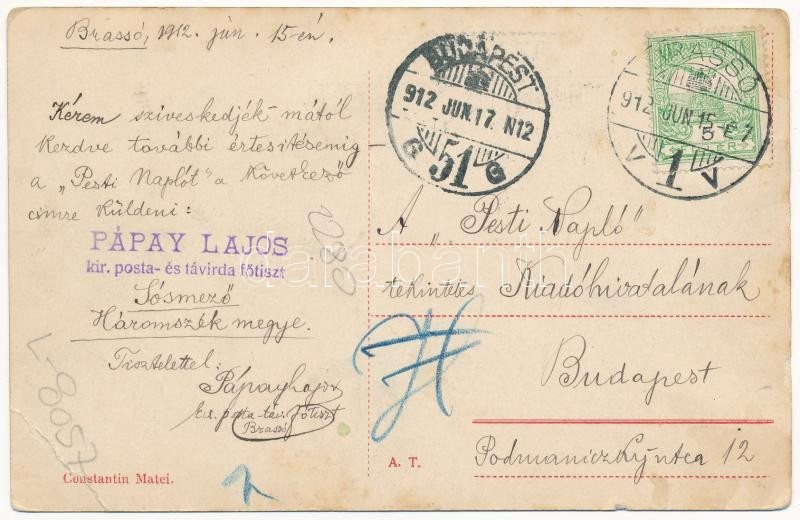 Brassó, 1912. jún. 15-én.
Kérem sziveskedjék mától
kezdve további értesitésemig
a „Pesti Naplót" a következő
címre küldeni:
PÁPAY LAJOS
kir. posta- és távirda főtiszt
Sósmező
Háromszék megye.
Tisztelettel:
Pápay Lajos
kir. posta-táv. főtiszt
Brassó
Constantin Matei.
L-8057
1280
BUDAPEST
912 JUN.17. N12
G 51 G
BRASSÓ
912 JUN 15
V 1 V
A „Pesti Napló"
tekintetes Kiadóhivatalának
Budapest
Podmaniczky utca 12
A. T.
darabanth